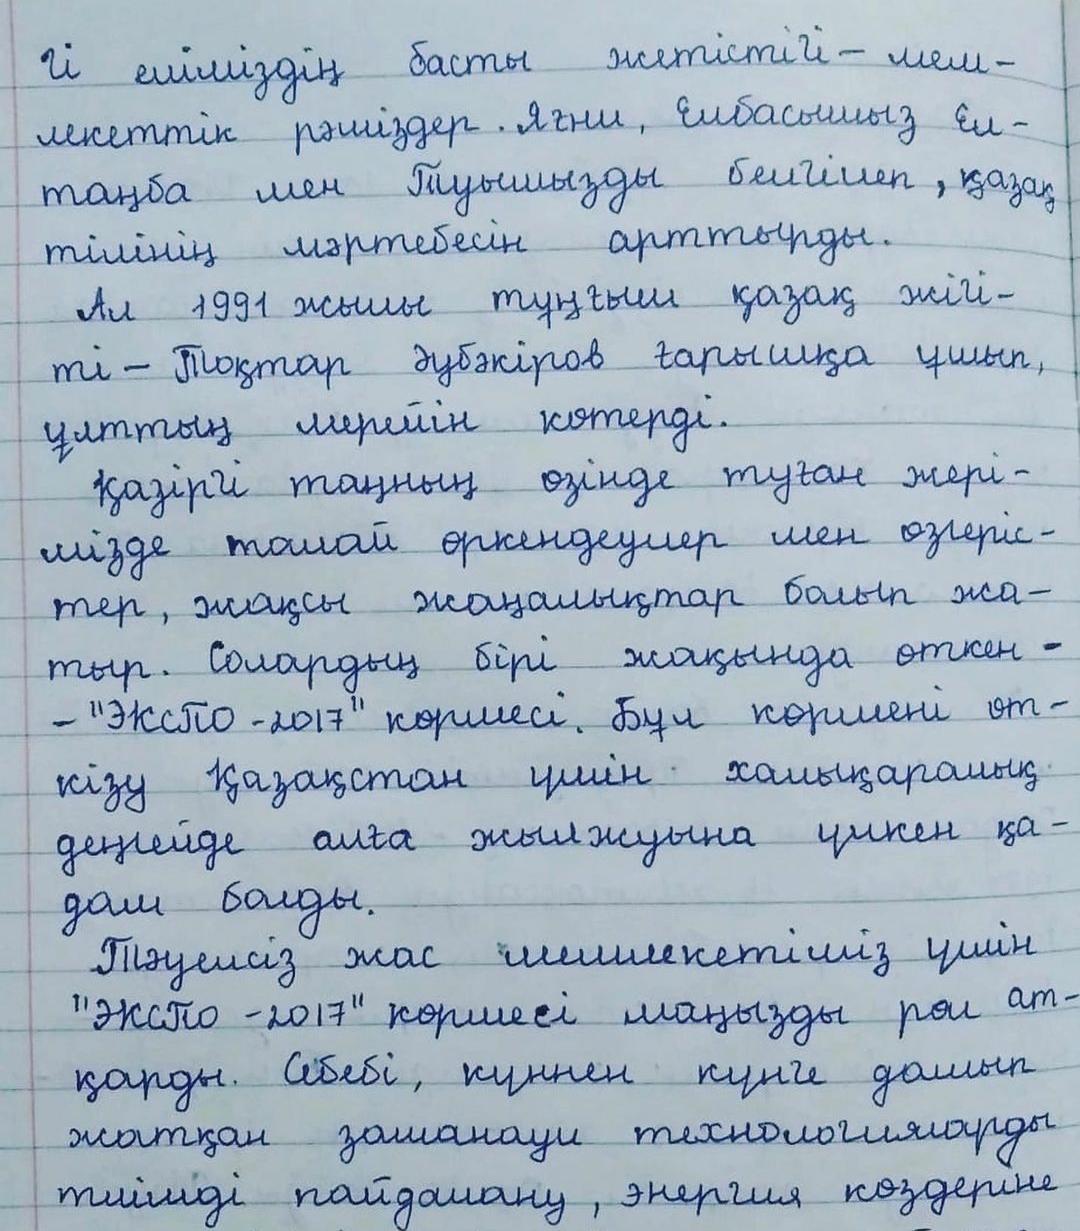 гі еліміздің басты жетістігі – мем-
лекеттік рәміздер. Яғни, Елбасымыз Ел-
таңба мен Туымызды бекітіп, қазақ
тілінің мәртебесін арттырды.
Ал 1991 жылы тұңғыш қазақ жігі-
ті – Тоқтар Әубәкіров ғарышқа ұшып,
ұлттың мерейін көтерді.
Қазіргі таңның өзінде туған жері-
мізде талай өркендеулер мен өзгеріс-
тер, жақсы жаңалықтар болып жа-
тыр. Солардың бірі жақында өткен -
- "ЭКСПО -2017" көрмесі. Бұл көрмені өт-
кізу Қазақстан үшін халықаралық
деңгейде алға жылжуына үлкен қа-
дам болды.
Тәуелсіз жас мемлекетіміз үшін
"ЭКСПО -2017" көрмесі маңызды рөл ат-
қарды. Себебі, күннен күнге дамып
жатқан заманауи технологияларды
тиімді пайдалану, энергия көздеріне